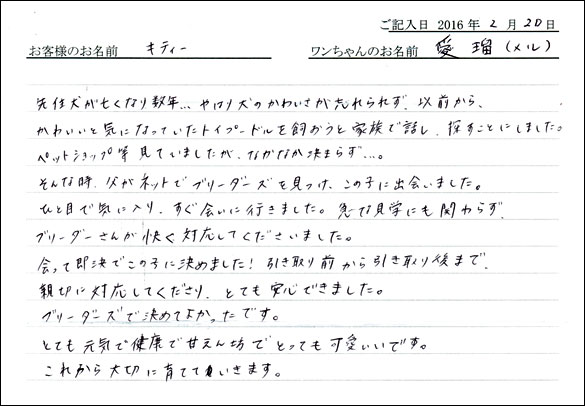 ご記入日 2016 年 2 月 20 日
お客様のお名前 キティー ワンちゃんのお名前 愛瑠(メル)
先住犬が亡くなり数年… やはり犬のかわいさが忘れられず、以前から、
かわいいと気になっていたトイプードルを飼おうと家族で話し、探すことにしました。
ペットショップ等見ていましたが、なかなか決まらず…。
そんな時、父がネットでブリーダーズを見つけ、この子に出会いました。
ひと目で気に入り、すぐ会いに行きました。急な見学にも関わらず、
ブリーダーさんが快く対応してくださいました。
会って即決でこの子に決めました!引き取り前から引き取り後まで、
親切に対応してくださり、とても安心できました。
ブリーダーズで決めてよかったです。
とても元気で健康で甘えん坊でとっても可愛いいです。
これから大切に育てていきます。